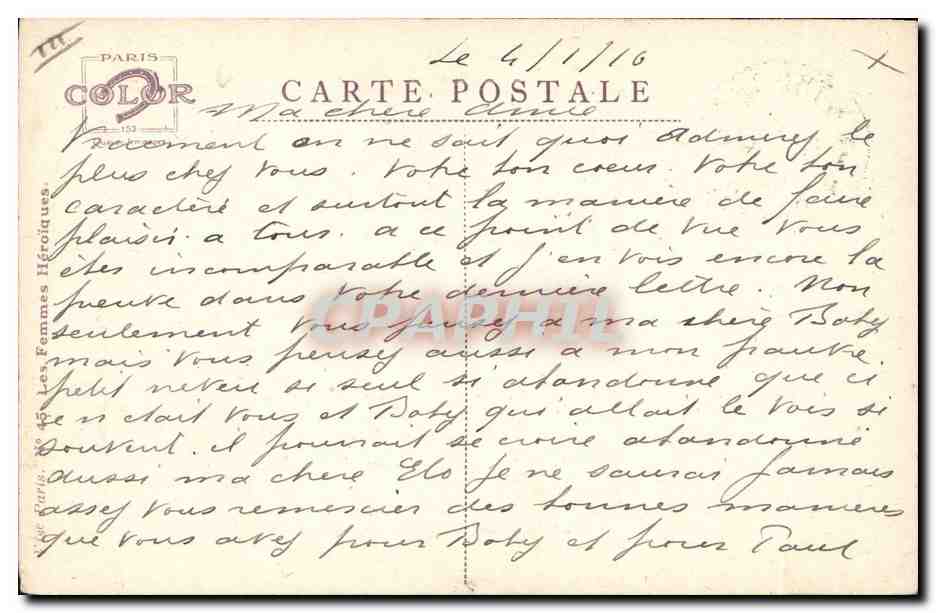 III.
PARIS
COLOR
152
CARTE POSTALE
Le 4/1/16
Ma chère Amie
Vraiment on ne sait quoi admirez le
plus chez vous. Votre bon coeur. Votre bon
caractère et surtout la manière de faire
plaisir. a tous. a ce point de vue vous
êtes incomparable et j'en vois encore la
preuve dans votre dernière lettre. Non
seulement vous pensez a ma chère Baby
mais vous pensez aussi a mon pauvre
petit neveu si seul si abandonné que ci
ce n etait vous et Baby qui allait le vois si
souvent. il pourrait se croire abandonné
aussi ma chere Elo je ne saurai jamais
assez vous remercier des bonnes manieres
que vous avez pour Baby et pour Paul
Paris. N° 45. Les Femmes Héroïques.
CPAPHIL